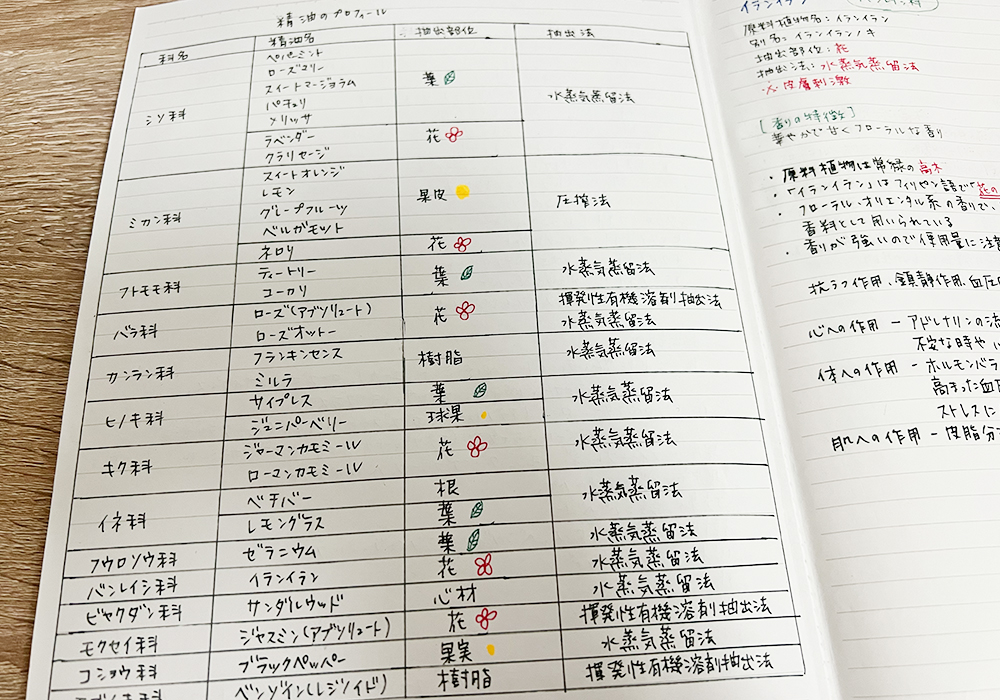 精油のプロフィール
科名 精油名 抽出部位 抽出法
シソ科 ペパーミント 葉 水蒸気蒸留法
ローズマリー
スイートマージョラム
パチュリ
メリッサ
ラベンダー 花
クラリセージ
ミカン科 スイートオレンジ 果皮 圧搾法
レモン
グレープフルーツ
ベルガモット
ネロリ 花
フトモモ科 ティートリー 葉 水蒸気蒸留法
ユーカリ
バラ科 ローズ(アブソリュート) 花 揮発性有機溶剤抽出法
ローズオットー 水蒸気蒸留法
カンラン科 フランキンセンス 樹脂 水蒸気蒸留法
ミルラ
ヒノキ科 サイプレス 葉 水蒸気蒸留法
ジュニパーベリー 球果
キク科 ジャーマンカモミール 花 水蒸気蒸留法
ローマンカモミール
イネ科 ベチバー 根 水蒸気蒸留法
レモングラス 葉
フウロソウ科 ゼラニウム 葉 水蒸気蒸留法
バンレイシ科 イランイラン 花 水蒸気蒸留法
ビャクダン科 サンダルウッド 心材 水蒸気蒸留法
モクセイ科 ジャスミン(アブソリュート) 花 揮発性有機溶剤抽出法
コショウ科 ブラックペッパー 果実 水蒸気蒸留法
ベンゾイン(レジノイド) 樹脂 揮発性有機溶剤抽出法
イランイラン
原料植物名:イランイラン
別名:イランイランノキ
抽出部位:花
抽出法:水蒸気蒸留法
※皮膚刺激
[香りの特徴]
華やかで甘くフローラルな香り
・原料植物は常緑の高木
・「イランイラン」はフィリピン語で「花の
・フローラル・オリエンタル系の香りで、
香料として用いられている
・香りが強いので使用量に注
抗うつ作用、鎮静作用、血圧
心への作用 ー アドレナリンの
不安な時や
体への作用 ー ホルモンバラ
高まった血
ストレスに
肌への作用 ー 皮脂分